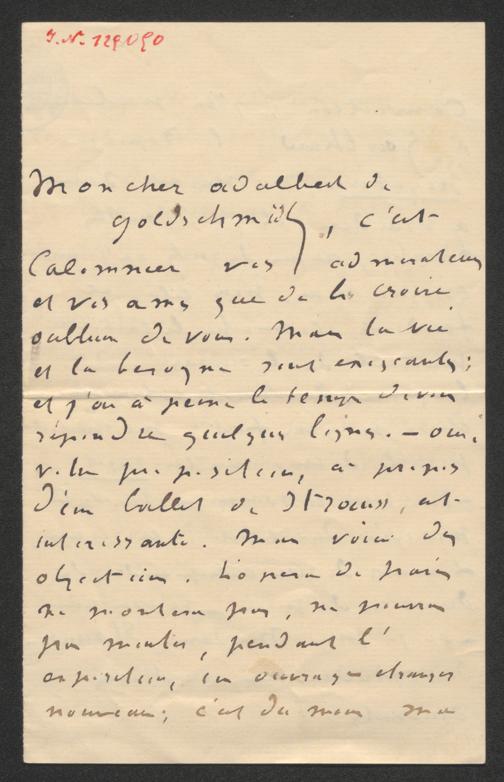 I.N. 129090
Mon cher adalbert de
goldschmidt, c'est
calomnier vos admirateurs
et vos amis que de les croire
oublieux de vous. Mais la vie
et la besogne sont exigeantes ;
et j'ai à peine le temps de vous
répondre quelques lignes. — oui,
votre proposition, à propos
d'un ballet de Strauss, est
intéressante. Mais voici des
objections. L'opéra de paris
ne montera pas, ne pourra
pas monter, pendant l'
exposition, un ouvrage étranger
nouveau ; c'est du moins ma